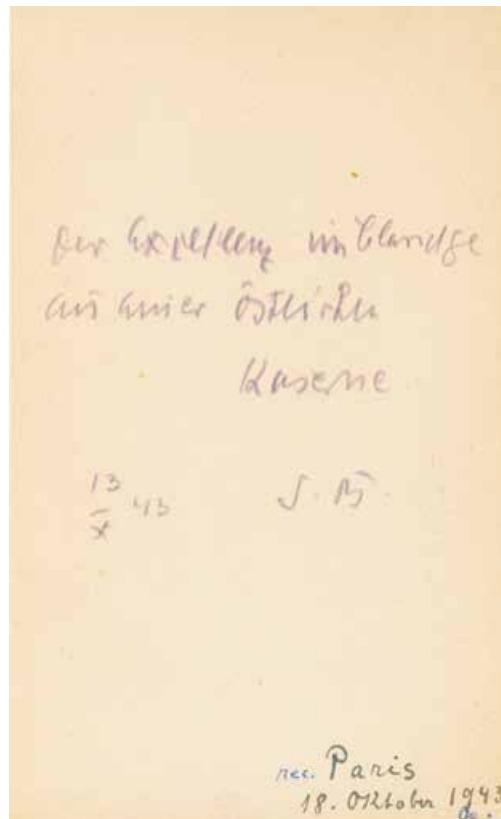 Der Excellenz im Claridge
aus einer östlichen
Kaserne
13
X 43 G. B.
rec. Paris
18. Oktober 1943